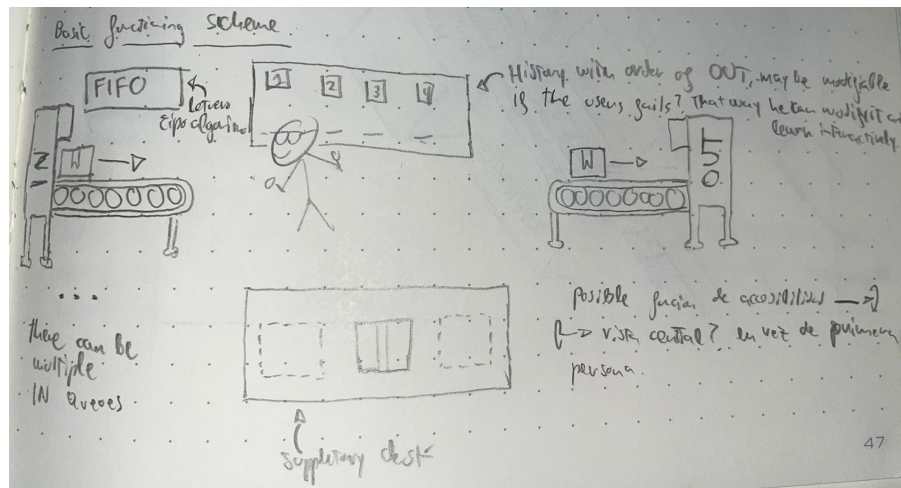 Basic functioning scheme
FIFO
Letrero
tipo
1 2 3 4
History with order of OUT, may be modifiable
if the users fails? That way he can modify it and
learn interactively.
IN
W
W
OUT
...
there can be
multiple
IN Queues
suppletory desk
posible función de accesibilidad
vista central? en vez de primera
persona.
47